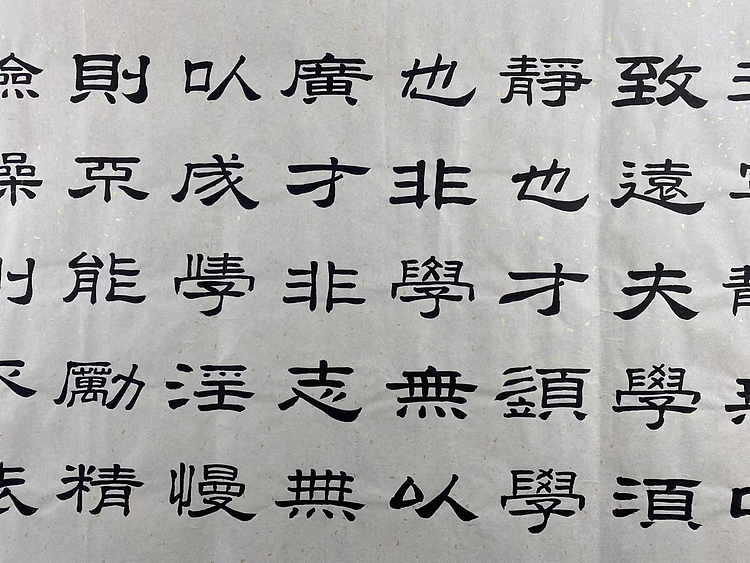 致遠夫學須
靜也才須學
也非學無以
廣才非志無
以成學淫慢
則不能勵精
險躁則不